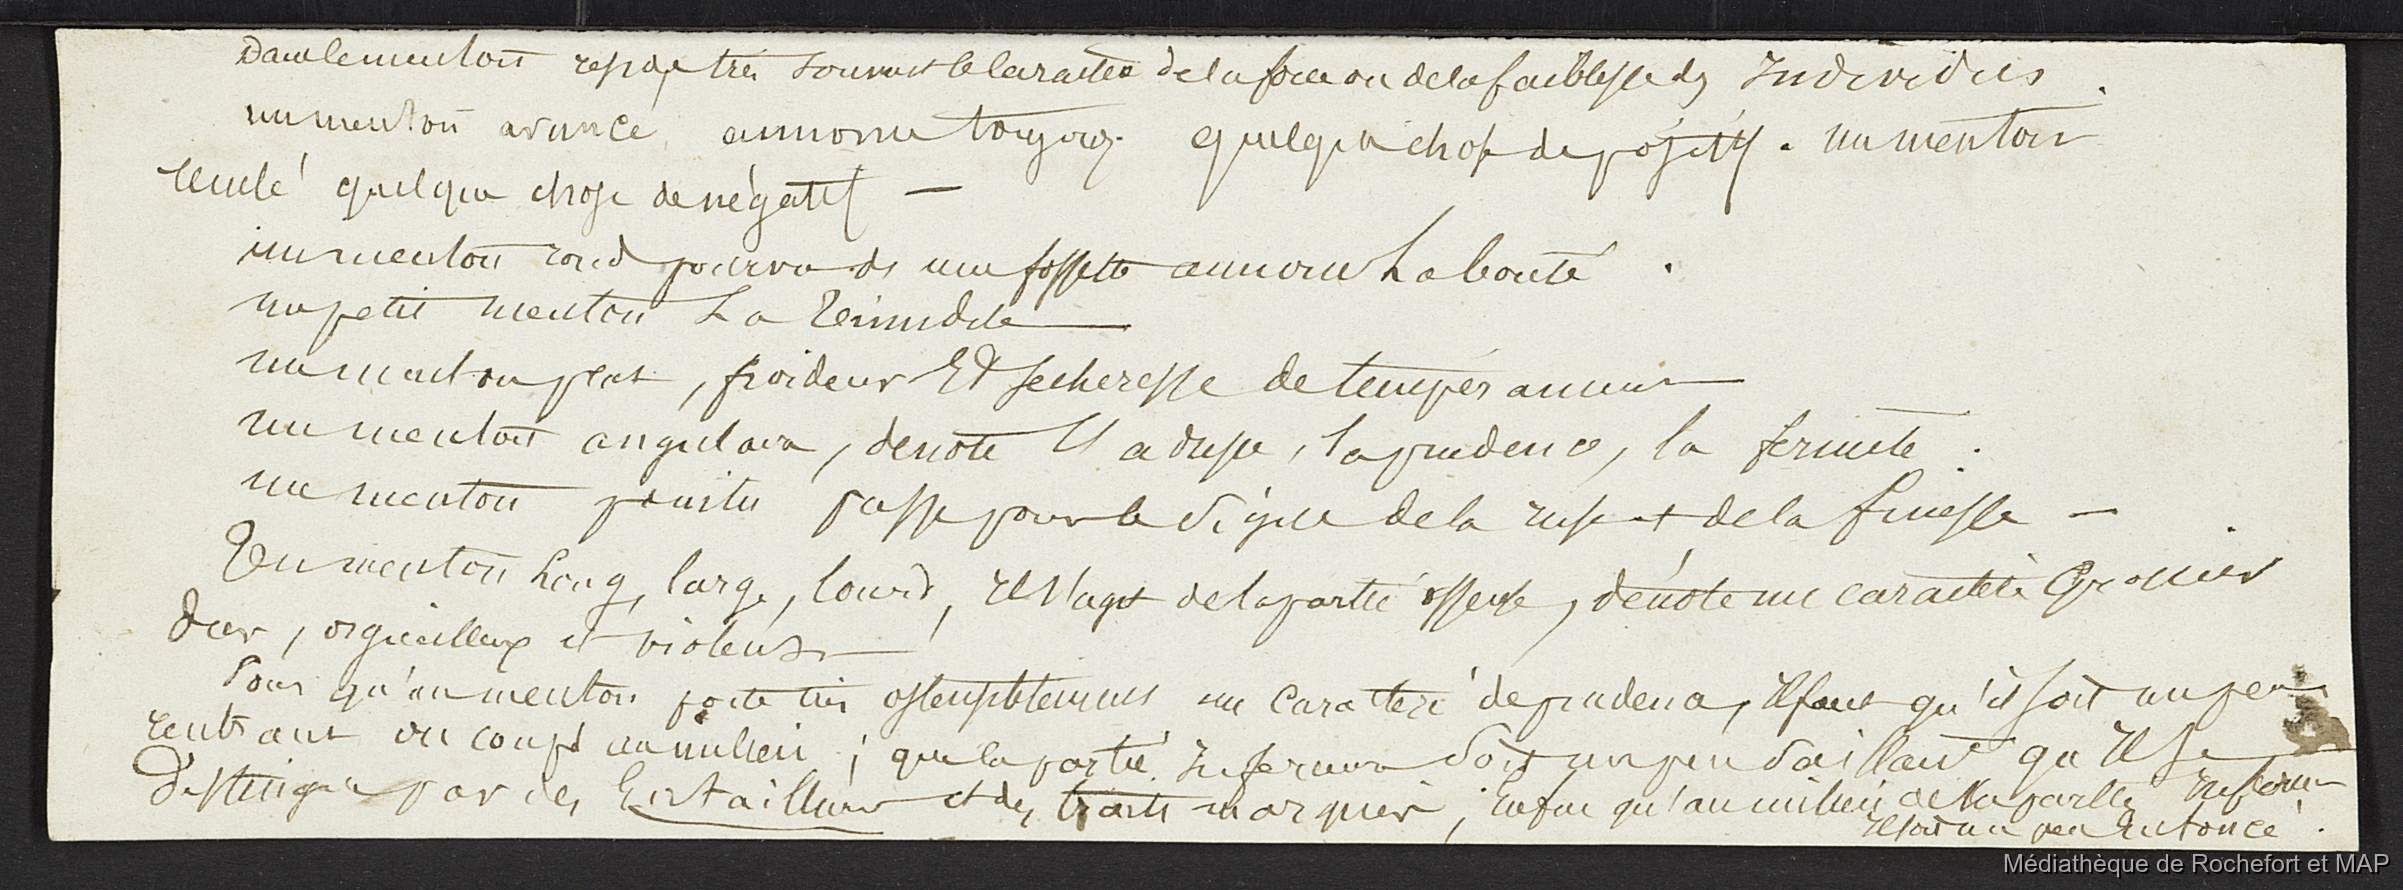 Dans le menton reside tres souvent le caractere de la force ou de la faiblesse des Individus .
un menton avancé annonce toujours quelque chose de positif . un menton
reculé quelque chose de négatif —
un menton rond pourvu de une fossette annonce La bonté .
un petit menton La timidite —
un menton plat , froideur Et secheresse de temperament —
un menton angulaire , denote l'adresse , la prudence , la fermeté .
un menton pointu passe pour le signe de la ruse et de la finesse —
Un menton Long , large , lourd , Il s'agit de la partie osseuse , dénote un caractère Grossier
dur , orgueilleux et violent —
Pour qu'un menton porte tres ostensiblement un caractere de prudence , Il faut qu'il soit un peu
rentrant ou coupé au milieu ; que la partie Inferieure soit un peu saillante qu'Il se
distingue par des Entailleures et des traits marqués ; Enfin qu'au milieu de la partie Inferieure
Il soit un peu Enfoncé .
Médiathèque de Rochefort et MAP